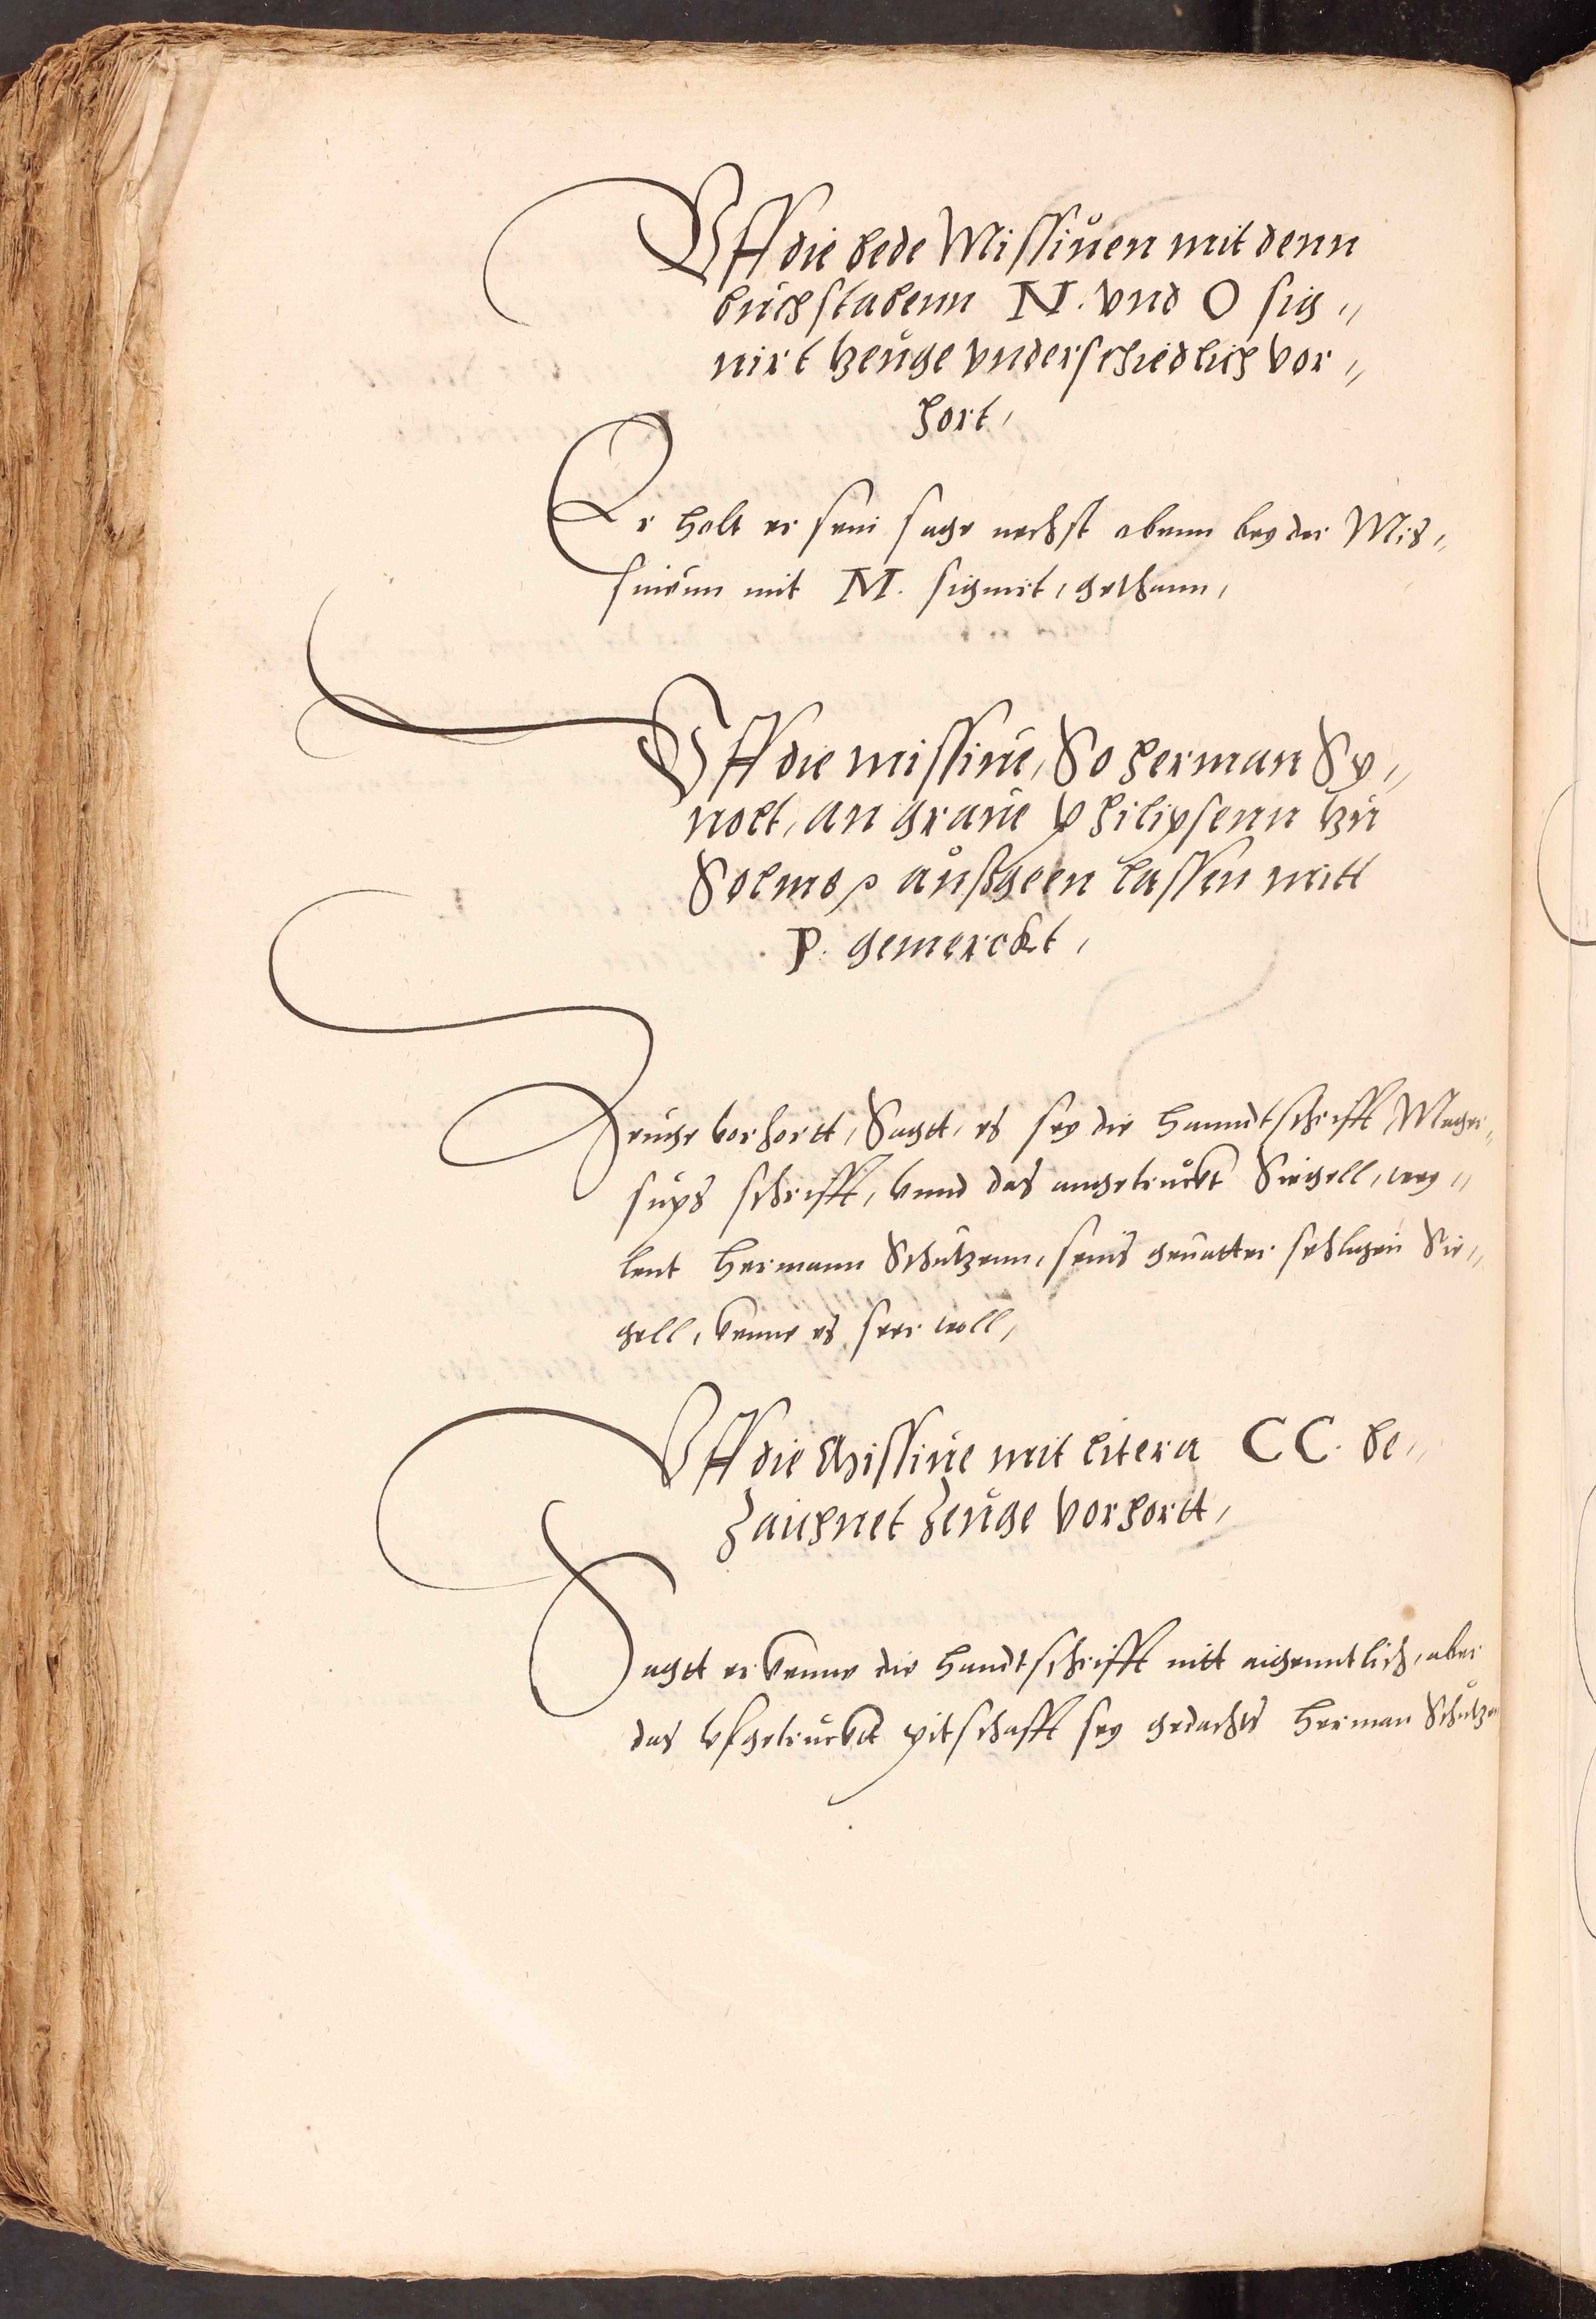 Vff die bede Missiuen mit denn
buchstabenn N. vnd O sig„
nirt tzeuge vnderschiedlich vor„
hort,
Er holt er sein sage nechst obenn bey der Mis„
siuenn mit M. signirt, gethann,
Vff die missiue, So Herman Sy„
nolt, an graue Philipsenn tzu
Solms außgeen lassen mitt
P. gemerckt,
Zeuge vorhortt, Sagtt, es sey die hanndtschrifft
schrifft, vnnd das angetruckt Siegell, wey„
lent Hermann Schutzenn, seins geuatter sehligen Sie„
gell, kenne es seer woll,
Vff die Missiue mit litera CC. be„
zaichnet Zeuge vorhortt,
Sagtt er kenne die handtschrifft nitt aigenntlich, aber
das vfgetruckt pitschafft sey gedachts Herman Schutzen